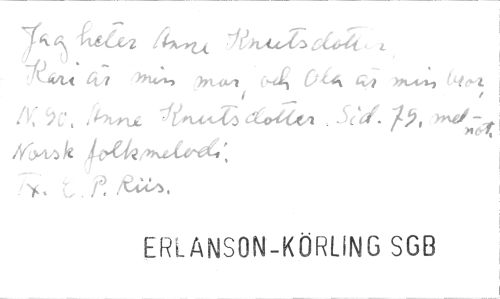 Jag heter Anne Knutsdotter,
Kari är min mor, och Ola är min bror,
N. 90. Anne Knutsdotter. Sid. 79. mel-not.
Norsk folkmelodi.
Tx. E. P. Riis.
ERLANSON-KÖRLING SGB